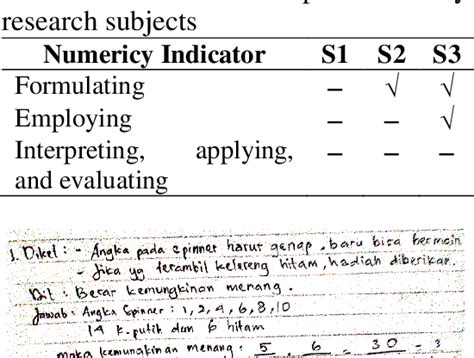 research subjects
Numericy Indicator S1 S2 S3
Formulating – √ √
Employing – – √
Interpreting, applying, – – –
and evaluating
1. Dikel : - Angka pada spinner harus genap, baru bisa bermain
- Jika yg terambil kelereng hitam, hadiah diberikan.
Dit : Besar kemungkinan menang.
Jawab : Angka Spinner : 1, 2, 4, 6, 8, 10
14 k. putih dan 6 hitam
maka kemungkinan menang : 5 6 = 30 = 3